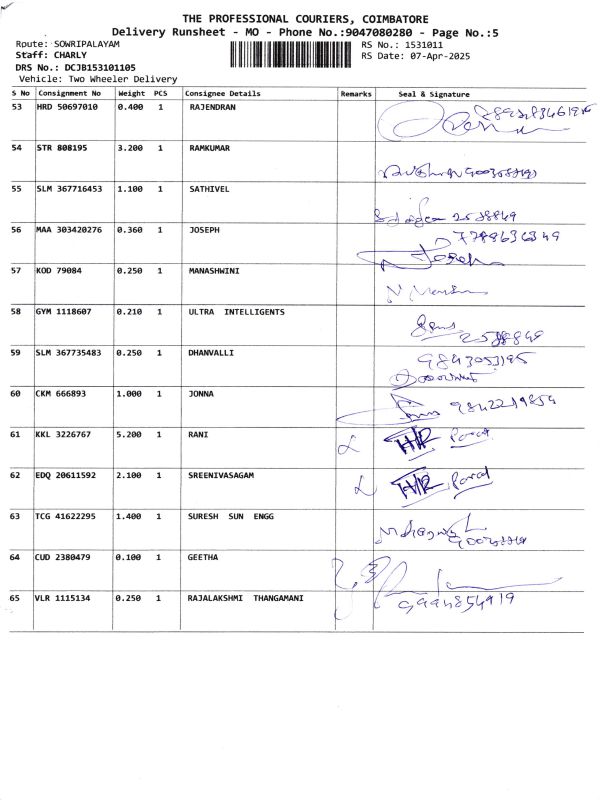 THE PROFESSIONAL COURIERS, COIMBATORE
Delivery Runsheet - MO - Phone No.:9047080280 - Page No.:5
Route: SOWRIPALAYAM RS No.: 1531011
Staff: CHARLY RS Date: 07-Apr-2025
DRS No.: DCJB153101105
Vehicle: Two Wheeler Delivery
S No Consignment No Weight PCS Consignee Details Remarks Seal & Signature
53 HRD 50697010 0.400 1 RAJENDRAN
54 STR 808195 3.200 1 RAMKUMAR
55 SLM 367716453 1.100 1 SATHIVEL 2588849
56 MAA 303420276 0.360 1 JOSEPH 7788636349
Joseph
57 KOD 79084 0.250 1 MANASHWINI
58 GYM 1118607 0.210 1 ULTRA INTELLIGENTS
2588849
59 SLM 367735483 0.250 1 DHANVALLI 9843053195
60 CKM 666893 1.000 1 JONNA 9842219854
61 KKL 3226767 5.200 1 RANI
62 EDQ 20611592 2.100 1 SREENIVASAGAM
63 TCG 41622295 1.400 1 SURESH SUN ENGG
64 CUD 2380479 0.100 1 GEETHA
65 VLR 1115134 0.250 1 RAJALAKSHMI THANGAMANI 9994854919